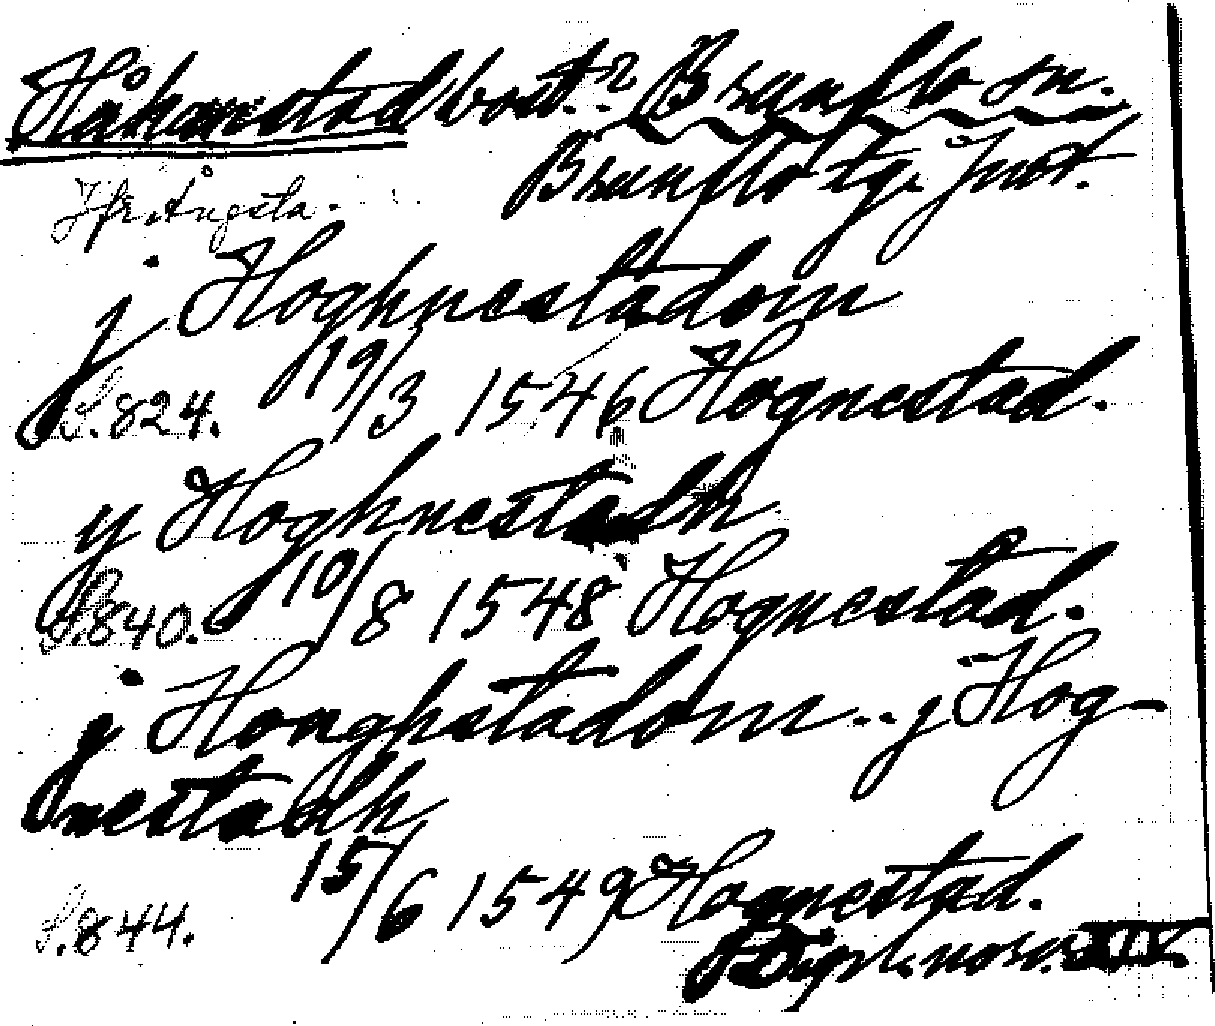 Håkanstad bost.? Brunflo sn.
Brunflo tg. Jmt.
Jfr Ångsta.
j Hoghnestadom
S. 824. 19/3 1546 Hognestad.
y Hoghnestadh
S. 840. 10/8 1548 Hognestad.
y Honghstadom .. j Hog-
nestadh
S. 844. 15/6 1549 Hognestad.
Dipl. norv. XIV.